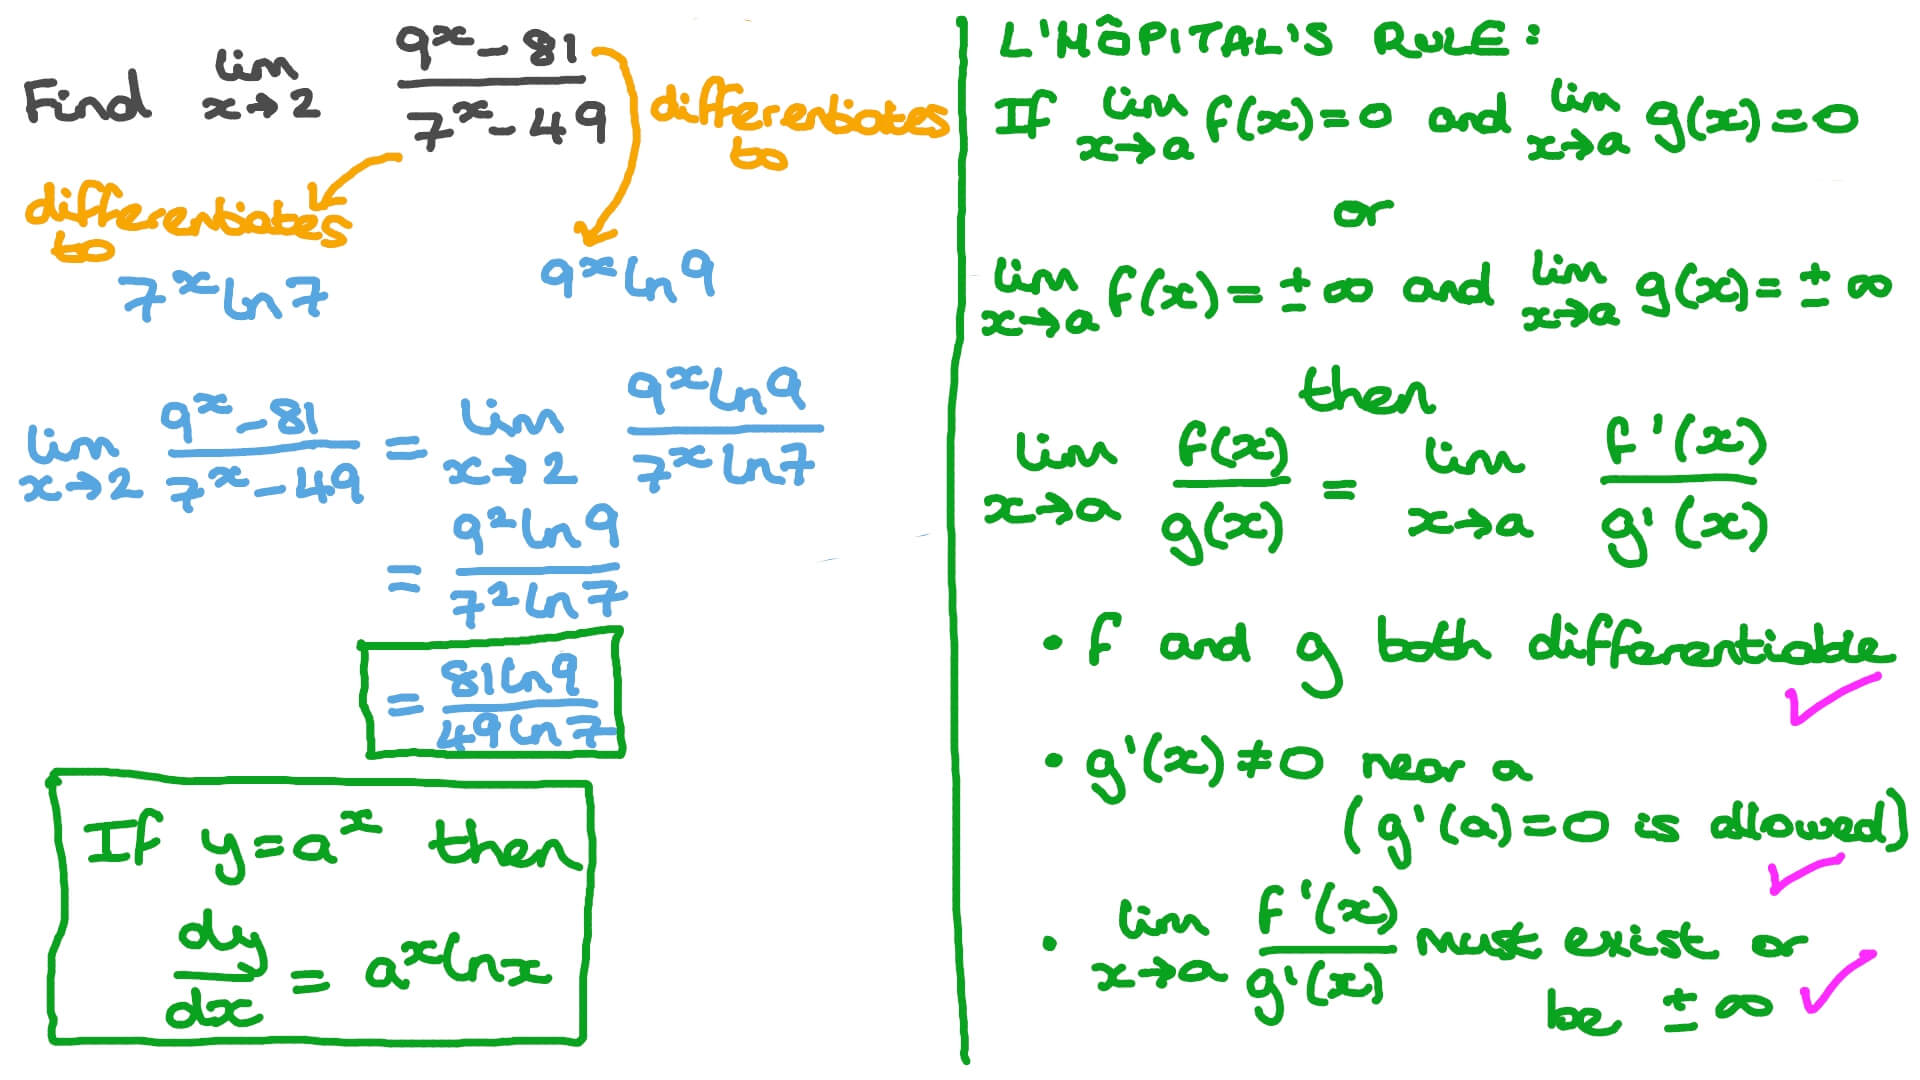 Find lim x→2 (9^x - 81)/(7^x - 49)
differentiates to
9^x ln 9
differentiates to
7^x ln 7
lim x→2 (9^x - 81)/(7^x - 49) = lim x→2 (9^x ln 9)/(7^x ln 7)
= (9² ln 9)/(7² ln 7)
= (81 ln 9)/(49 ln 7)
If y = a^x then
dy/dx = a^x ln x
L'HÔPITAL'S RULE:
If lim x→a f(x) = 0 and lim x→a g(x) = 0
or
lim x→a f(x) = ± ∞ and lim x→a g(x) = ± ∞
then
lim x→a f(x)/g(x) = lim x→a f'(x)/g'(x)
• f and g both differentiable ✓
• g'(x) ≠ 0 near a
(g'(a) = 0 is allowed) ✓
• lim x→a f'(x)/g'(x) must exist or
be ± ∞ ✓